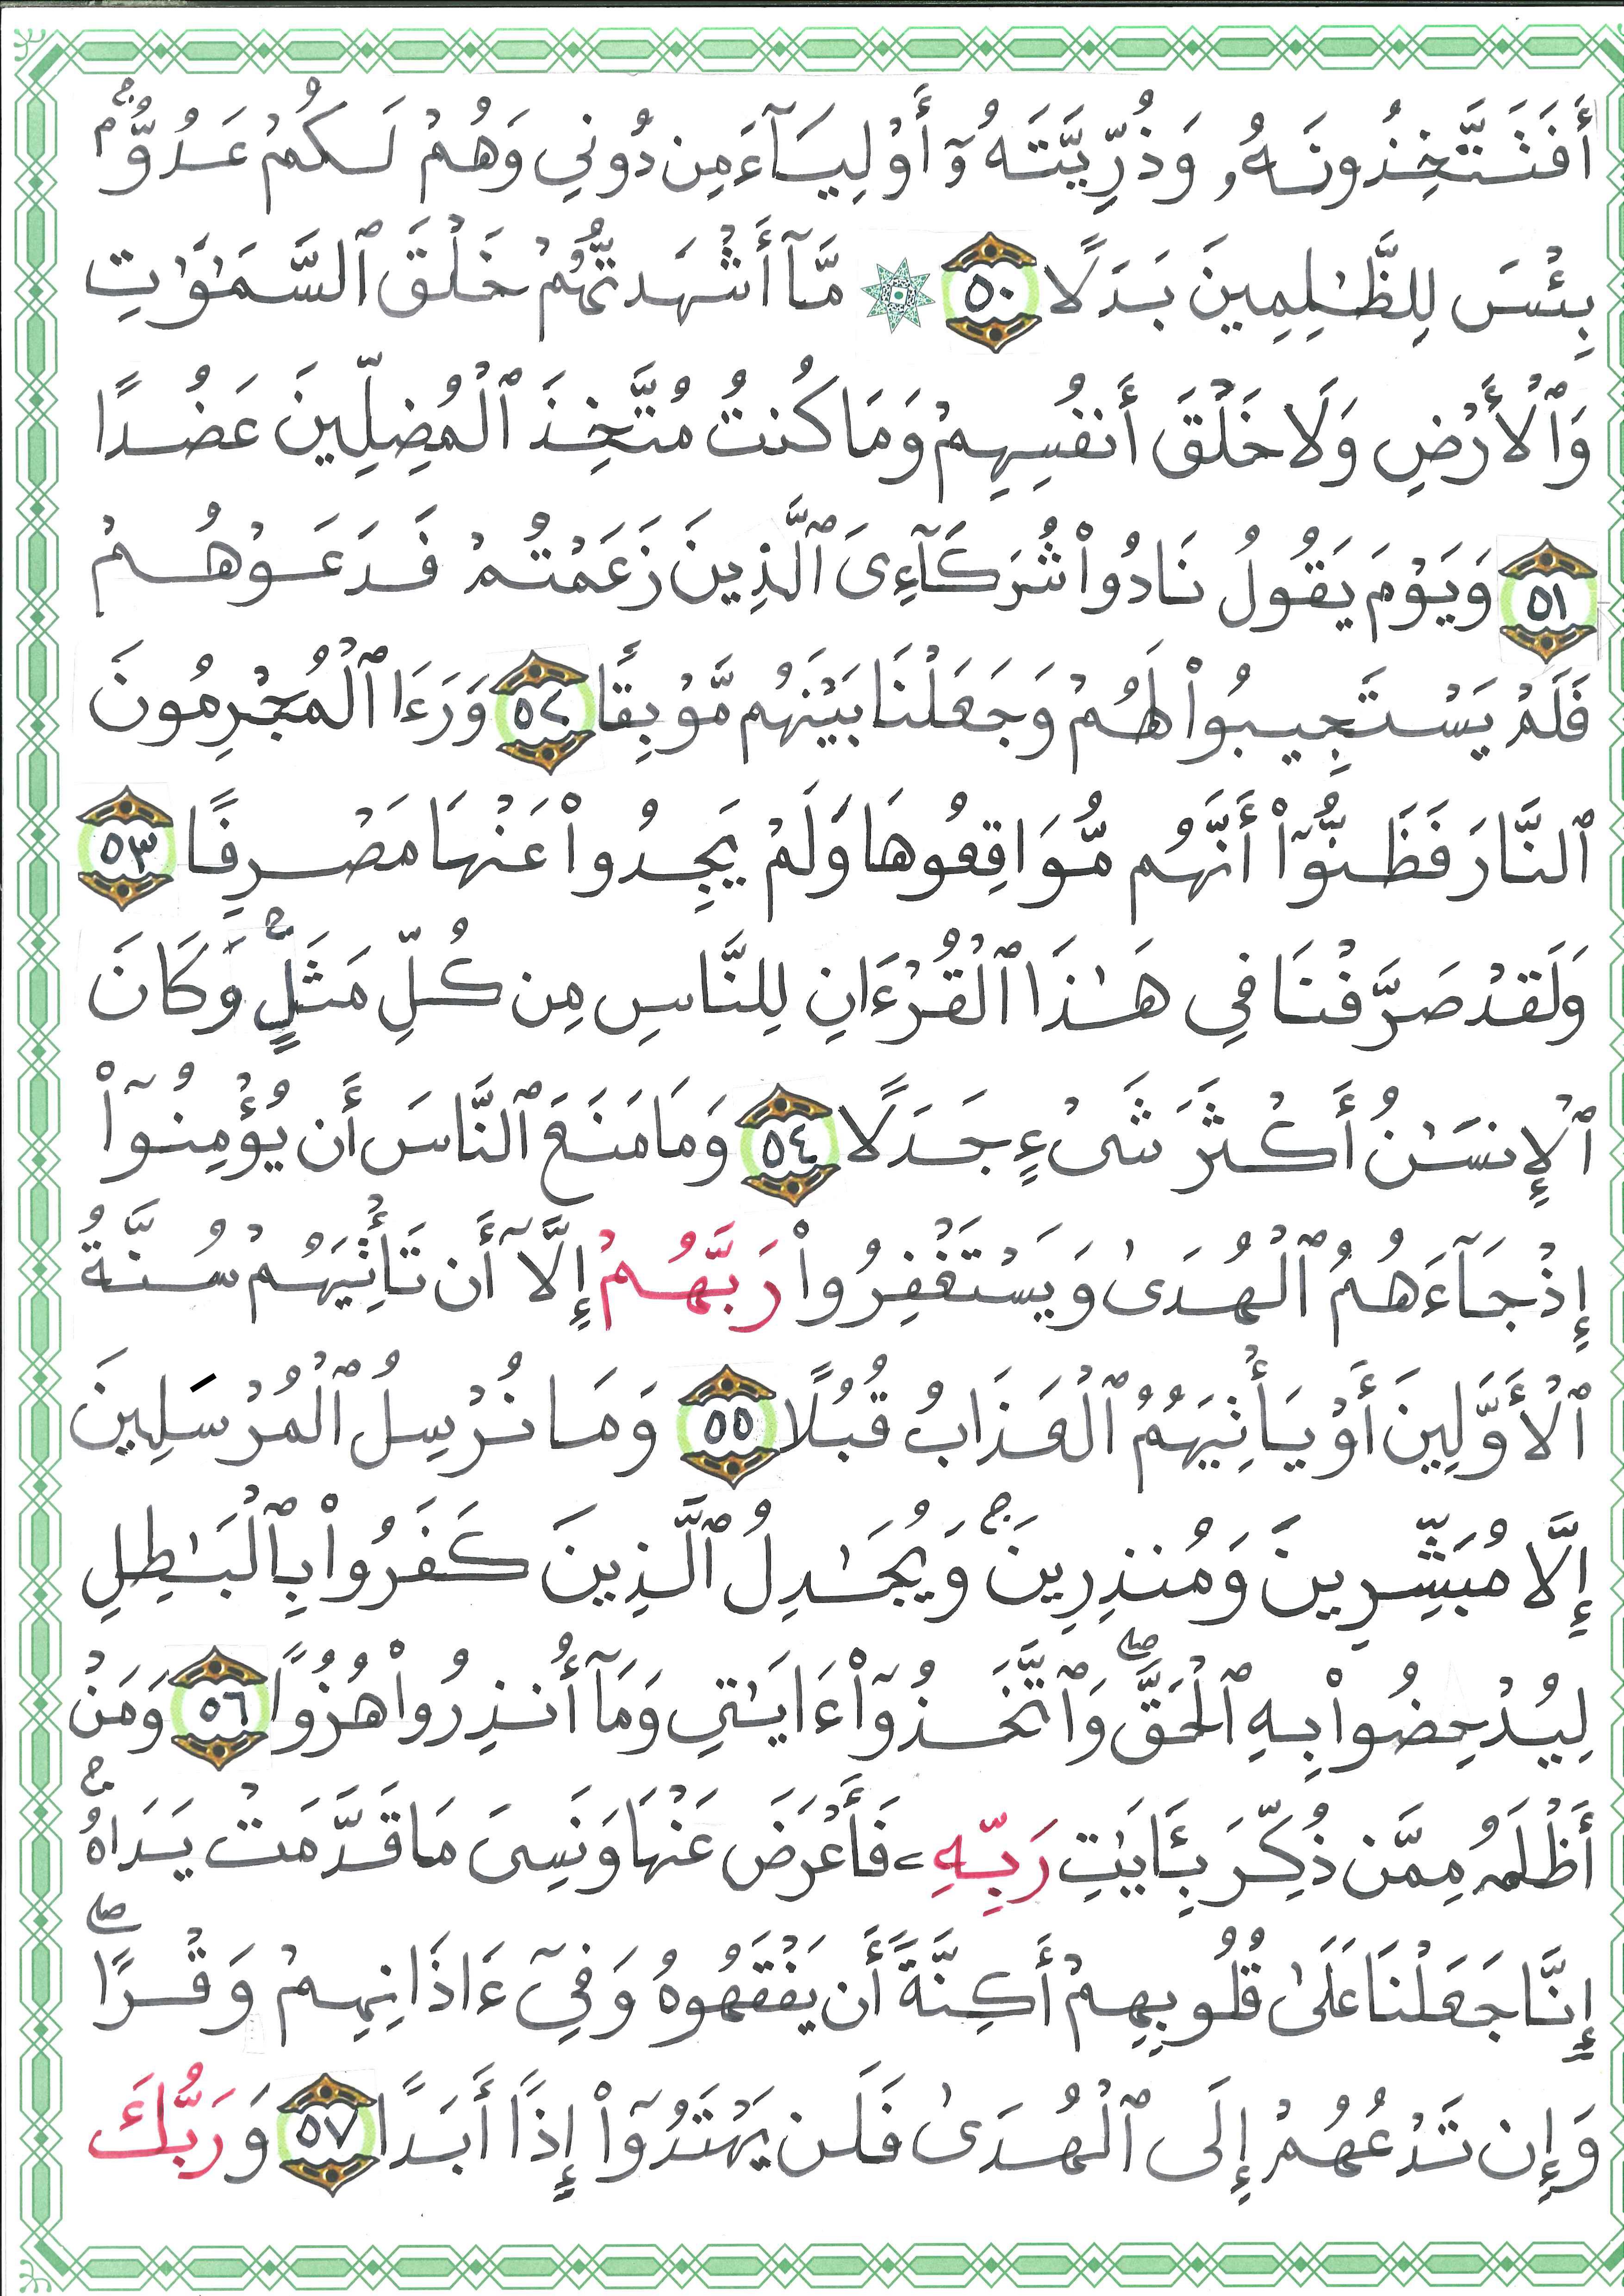 أَفَتَتَّخِذُونَهُۥ وَذُرِّيَّتَهُۥٓ أَوْلِيَآءَ مِن دُونِي وَهُمْ لَكُمْ عَدُوُّۢ ۚ
بِئْسَ لِلظَّٰلِمِينَ بَدَلًا ٥٠ ۞ مَّآ أَشْهَدتُّهُمْ خَلْقَ ٱلسَّمَٰوَٰتِ
وَٱلْأَرْضِ وَلَا خَلْقَ أَنفُسِهِمْ وَمَا كُنتُ مُتَّخِذَ ٱلْمُضِلِّينَ عَضُدًا
٥١ وَيَوْمَ يَقُولُ نَادُوا۟ شُرَكَآءِىَ ٱلَّذِينَ زَعَمْتُمْ فَدَعَوْهُمْ
فَلَمْ يَسْتَجِيبُوا۟ لَهُمْ وَجَعَلْنَا بَيْنَهُم مَّوْبِقًا ٥٢ وَرَءَا ٱلْمُجْرِمُونَ
ٱلنَّارَ فَظَنُّوٓا۟ أَنَّهُم مُّوَاقِعُوهَا وَلَمْ يَجِدُوا۟ عَنْهَا مَصْرِفًا ٥٣
وَلَقَدْ صَرَّفْنَا فِى هَٰذَا ٱلْقُرْءَانِ لِلنَّاسِ مِن كُلِّ مَثَلٍ ۚ وَكَانَ
ٱلْإِنسَٰنُ أَكْثَرَ شَىْءٍ جَدَلًا ٥٤ وَمَا مَنَعَ ٱلنَّاسَ أَن يُؤْمِنُوٓا۟
إِذْ جَآءَهُمُ ٱلْهُدَىٰ وَيَسْتَغْفِرُوا۟ رَبَّهُمْ إِلَّآ أَن تَأْتِيَهُمْ سُنَّةُ
ٱلْأَوَّلِينَ أَوْ يَأْتِيَهُمُ ٱلْعَذَابُ قُبُلًا ٥٥ وَمَا نُرْسِلُ ٱلْمُرْسَلِينَ
إِلَّا مُبَشِّرِينَ وَمُنذِرِينَ ۚ وَيُجَٰدِلُ ٱلَّذِينَ كَفَرُوا۟ بِٱلْبَٰطِلِ
لِيُدْحِضُوا۟ بِهِ ٱلْحَقَّ ۖ وَٱتَّخَذُوٓا۟ ءَايَٰتِي وَمَآ أُنذِرُوا۟ هُزُوًا ٥٦ وَمَنْ
أَظْلَمُ مِمَّن ذُكِّرَ بِـَٔايَٰتِ رَبِّهِۦ فَأَعْرَضَ عَنْهَا وَنَسِىَ مَا قَدَّمَتْ يَدَاهُ ۚ
إِنَّا جَعَلْنَا عَلَىٰ قُلُوبِهِمْ أَكِنَّةً أَن يَفْقَهُوهُ وَفِىٓ ءَاذَانِهِمْ وَقْرًا ۖ
وَإِن تَدْعُهُمْ إِلَى ٱلْهُدَىٰ فَلَن يَهْتَدُوٓا۟ إِذًا أَبَدًا ٥٧ وَرَبُّكَ